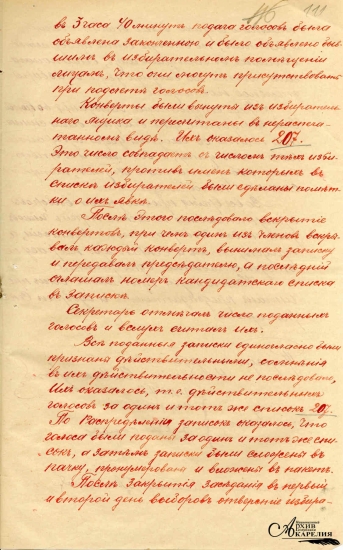 116 111
въ 3 часа 40 минутъ подача голосовъ была
объявлена законченною и было объявлено быв-
шимъ въ избирательномъ помѣщеніи
лицамъ, что они могутъ присутствовать
при подсчетѣ голосовъ.
Конверты были вынуты изъ избиратель-
наго ящика и пересчитаны въ нераспеча-
танномъ видѣ. Ихъ оказалось 207.
Это число совпадаетъ съ числомъ тѣхъ изби-
рателей, противъ именъ которыхъ въ
спискѣ избирателей были сдѣланы помѣт-
ки, о ихъ явкѣ.
Послѣ этого послѣдовало вскрытіе
конвертовъ, при чемъ одинъ изъ членовъ вскры-
валъ каждый конвертъ, вынималъ записку
и передавалъ предсѣдателю, а послѣдній
номеръ кандидатскаго списка
въ запискѣ.
Секретарь отмѣчалъ число поданныхъ
голосовъ и вслухъ считалъ ихъ.
Всѣ поданныя записки единогласно были
признаны дѣйствительными, сомнѣнія
въ ихъ дѣйствительности не послѣдовало,
Ихъ оказалось, т.е. дѣйствительныхъ
голосовъ за одинъ и тотъ же списокъ 207.
По распредѣленіи записокъ оказалось, что
голоса были поданы за одинъ и тотъ же спи-
сокъ, а затѣмъ записки были сложены въ
пачку, пронумерованы и вложены въ пакетъ.
Послѣ закрытія засѣданія въ первый
и второй день выборовъ отверстіе избира-
АРХИВ
КАРЕЛИЯ